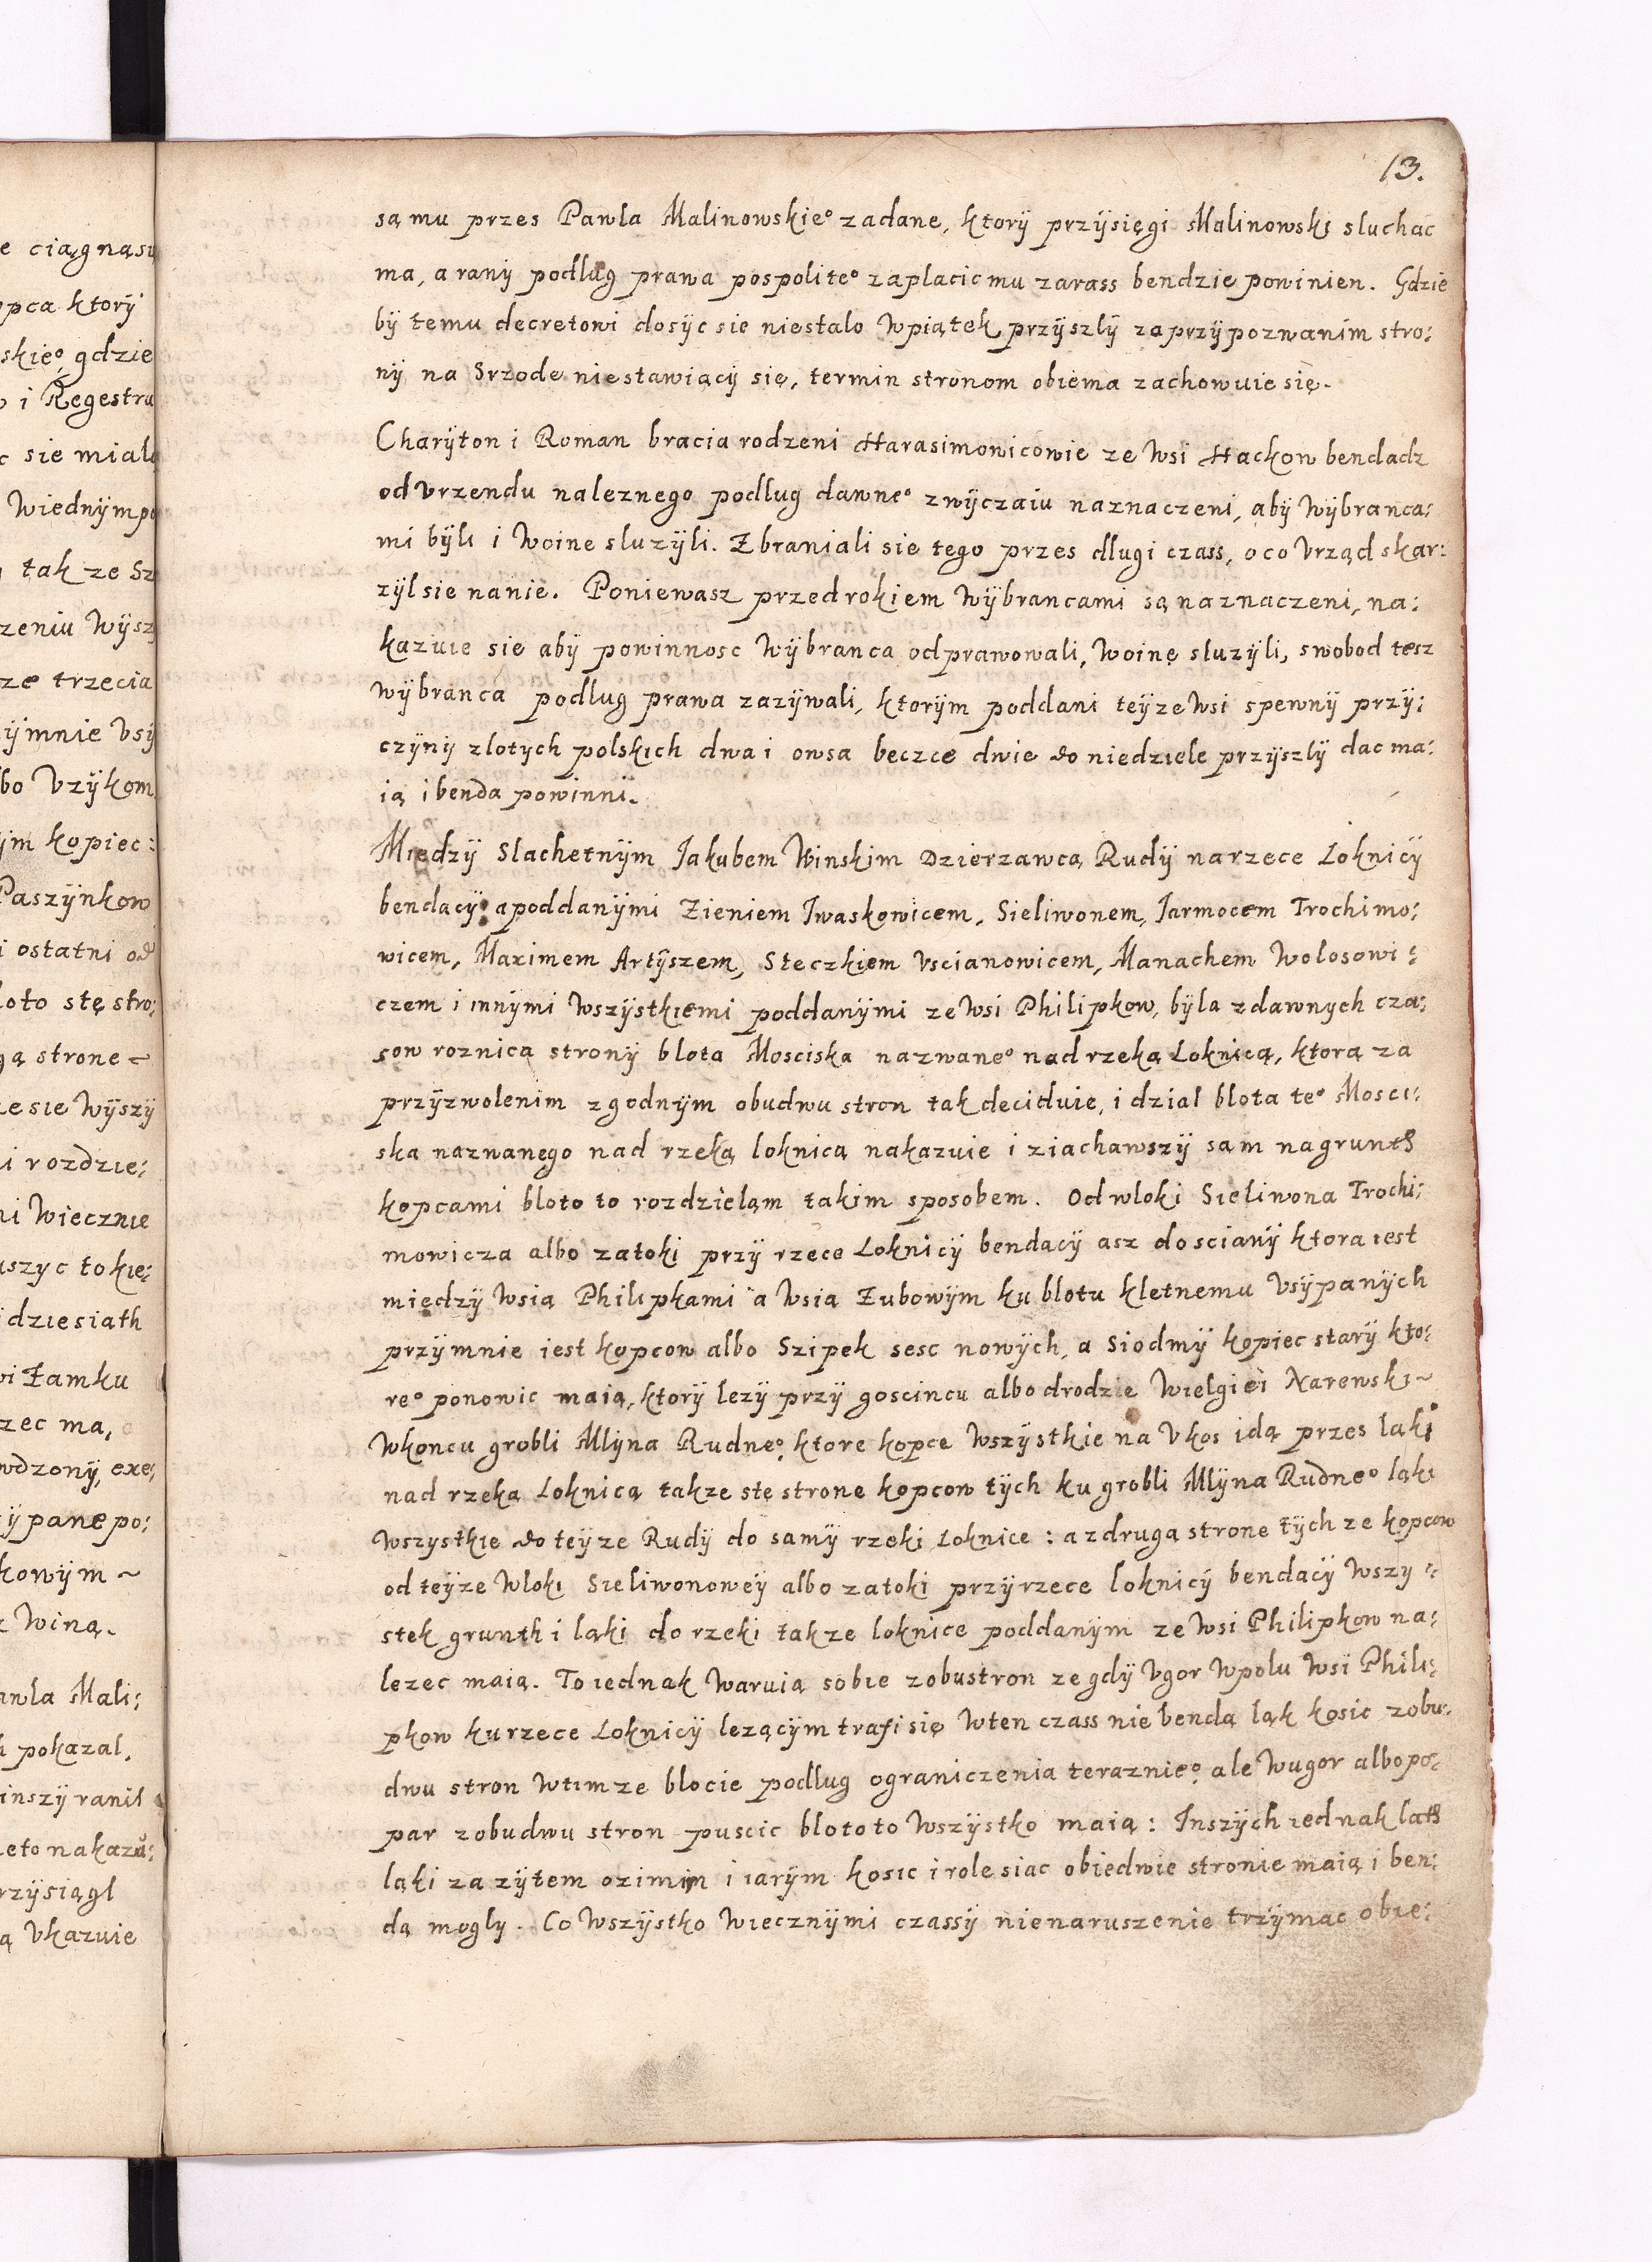 13.
są mu przes Pawla Malinowskie° zadane, ktorÿ przÿsięgi Malinowski sluchac
ma, a ranÿ podlug prawa pospolite° zaplacic mu zarass bendzie powinien. Gdzie
bÿ temu decretowi dosÿc sie niestalo Wpiątek przÿszlÿ za przÿpozwanim stro:
nÿ na Srzode niestawiącÿ się, termin stronom obiema zachowuie się.
Charÿton i Roman bracia rodzeni Harasimowicowie ze Wsi Hackow bendadz
od Vrzendu naleznego podlug dawne° zwÿczaiu naznaczeni, abÿ Wÿbranca:
mi bÿli i Woine sluzÿli. Zbraniali sie tego przes dlugi czass, o co Vrząd skar:
zÿl sie nanie. Poniewasz przed rokiem Wÿbrancami są naznaczeni, na:
kazuie sie abÿ powinnosc Wÿbranca odprawowali, Woinę sluzÿli, swobod tesz
Wÿbranca podlug prawa zazÿwali, ktorÿm poddani teÿze Wsi spewnÿ przÿ:
czÿnÿ zlotych polskich dwa i owsa beczce dwie do niedziele przÿszlÿ dac ma:
ią i benda powinni.
Międzÿ Slachetnÿm Jakubem Winskim Dzierzawcą Rudÿ narzece Loknicÿ
bendacÿ a poddanÿmi Zieniem Jwaskowicem, Sieliwonem, Jarmocem Trochimo:
wicem, Maximem Artÿszem, Steczkiem Vscianowicem, Manachem Wolosowi:
czem i innÿmi Wszÿstkiemi poddanÿmi ze Wsi Philipkow, bÿla zdawnych cza:
sow roznica stronÿ blota Mosciska nazwane° nad rzeką Loknicą, ktorą za
przÿzwolenim zgodnÿm obudwu stron tak deciduie, i dzial blota te° Mosci:
ska nazwanego nad rzeką loknicą nakazuie i ziachawszÿ sam na grunth
kopcami bloto to rozdzielam takim sposobem. Od wloki Sieliwona Trochi:
mowicza albo zatoki przÿ rzece Loknicÿ bendacÿ asz do scianÿ ktora iest
międzÿ Wsią Philipkami a Wsią Zubowÿm ku blotu kletnemu Vsÿpanÿch
przÿmnie iest kopcow albo Szipek sesc nowÿch, a siodmÿ kopiec starÿ kto:
re° ponowic maią, ktorÿ lezÿ przÿ goscincu albo drodzie Wielgiei Narewski~
Wkoncu grobli Mlÿna Rudne°, ktore kopce Wszÿstkie na Vkos idą przes laki
nad rzeką Loknicą takze stę strone kopcow tÿch ku grobli Mlÿna Rudne° ląki
Wszystkie do teÿze Rudÿ do samÿ rzeki Loknice : a zdruga strone tÿch ze kopcow
od teÿze Wloki Sieliwonoweÿ albo zatoki przÿ rzece loknicÿ bendacÿ Wszy :
stek grunth i ląki do rzeki takze loknice poddanÿm ze Wsi Philipkow na:
lezec maią. To iednak Waruią sobie zobustron ze gdÿ Vgor Wpolu Wsi Phili:
pkow ku rzece Loknicÿ lezącÿm trafi się Wten czass nie bendą ląk kosic zobu:
dwu stron Wtimze blocie podlug ograniczenia teraznie°, ale Wugor albo po:
par zobudwu stron puscic bloto to Wszÿstko maią : Jnszÿch iednak lath
ląki za zÿtem ozimim i iarÿm kosic i role siac obiedwie stronie maią i ben:
dą moglÿ. Co Wszÿstko Wiecznÿmi czassÿ nienaruszenie trzÿmac obie: